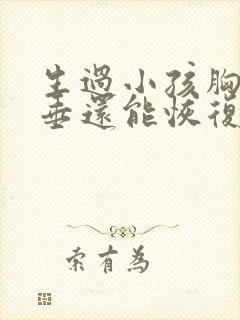 生過小孩胸
垂還能恢復
索有為